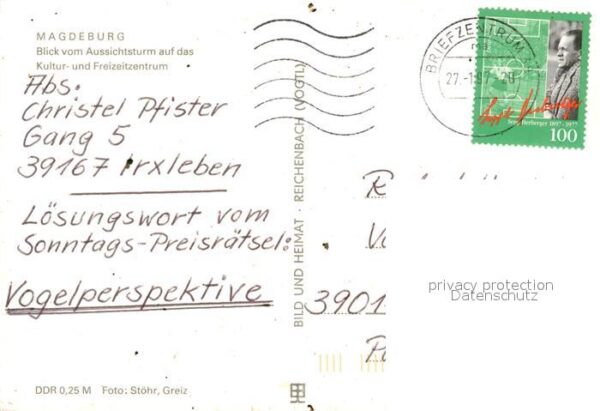 MAGDEBURG
Blick vom Aussichtsturm auf das
Kultur- und Freizeitzentrum
Abs:
Christel Pfister
Gang 5
39167 Irxleben
Lösungswort vom
Sonntags-Preisrätsel:
Vogelperspektive
DDR 0,25 M Foto: Stöhr, Greiz
BILD UND HEIMAT · REICHENBACH (VOGTL)
BRIEFZENTRUM
Sepp Herberger 1897-1977
100
3901
privacy protection
Datenschutz